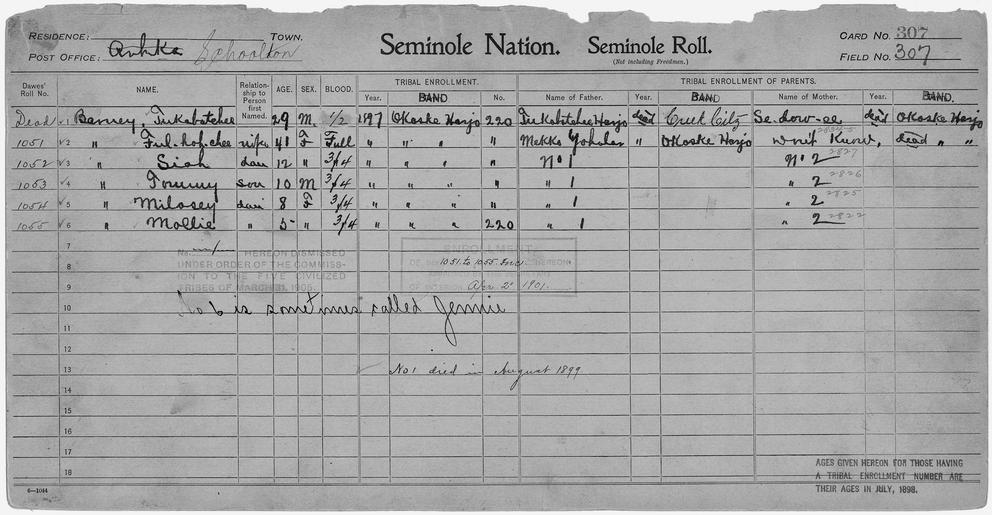 RESIDENCE: TOWN.
POST OFFICE: Arhka Schoolton
Seminole Nation. Seminole Roll.
(Not including Freedmen.)
CARD NO. 307
FIELD NO. 307
Dawes' Roll No. NAME. Relationship to Person first Named. AGE. SEX. BLOOD. TRIBAL ENROLLMENT. Year. BAND No. TRIBAL ENROLLMENT OF PARENTS. Name of Father. Year. BAND Name of Mother. Year. BAND.
Dead 1 Barney, Tukabatchee 29 M. 1/2 1897 Okoske Harjo 220 Tukabatchee Harjo dead Creek Citz Se-dow-ee dead Okoske Harjo
1051 2 " Ful-hoh-chee wife 41 F Full " " " " Mekko Yoholar " Okoske Harjo Don't Know, dead " "
1052 3 " Siah dau 12 " 3/4 " " " " No 1 No 2 2827
1053 4 " Tommy son 10 M 3/4 " " " " " 1 " 2 2826
1054 5 " Milosey dau 8 F 3/4 " " " " " 1 " 2 2825
1055 6 " Mollie " 5 " 3/4 " " " 220 " 1 " 2 2822
7
No. HEREON DISMISSED
UNDER ORDER OF THE COMMISSION
TO THE FIVE CIVILIZED
TRIBES OF MARCH 31, 1905.
ENROLLMENT
OF 1051 to 1055 Incl. HEREON
OF INTERIOR Apr 2 1901.
8
9
10 No 6 is sometimes called Jennie
11
12
13 No 1 died in August 1899
14
15
16
17
18
AGES GIVEN HEREON FOR THOSE HAVING
A TRIBAL ENROLLMENT NUMBER ARE
THEIR AGES IN JULY, 1898.
6—1044